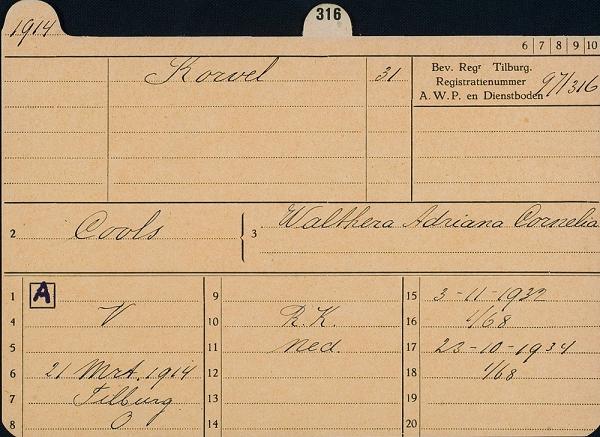 1914
316
6 7 8 9 10
Korvel 31
Bev. Regr Tilburg.
Registratienummer
A. W. P. en Dienstboden 97/316
2 Cools 3 Walthera Adriana Cornelia
1 A 9 15 3-11-1932
4 V 10 R.K. 16 4/68
5 11 Ned. 17 23-10-1934
6 21 Mrt. 1914 12 18 4/68
7 Tilburg 13 19
8 O 14 20